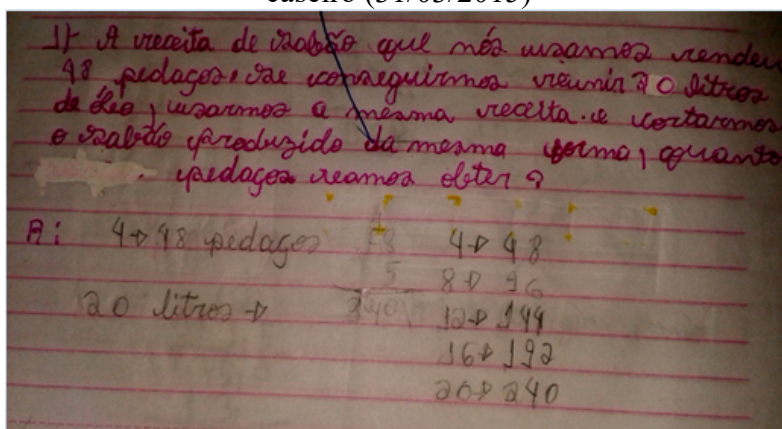 caseiro (31/05/2015)
1) A receita de sabão que nós usamos rendeu
48 pedaços, se conseguirmos reunir 20 litros
de óleo, usarmos a mesma receita e cortarmos
o sabão produzido da mesma forma, quantos
pedaços vamos obter?
R: 4→48 pedaços
20 litros →
48
5
240
4→48
8→96
12→144
16→192
20→240